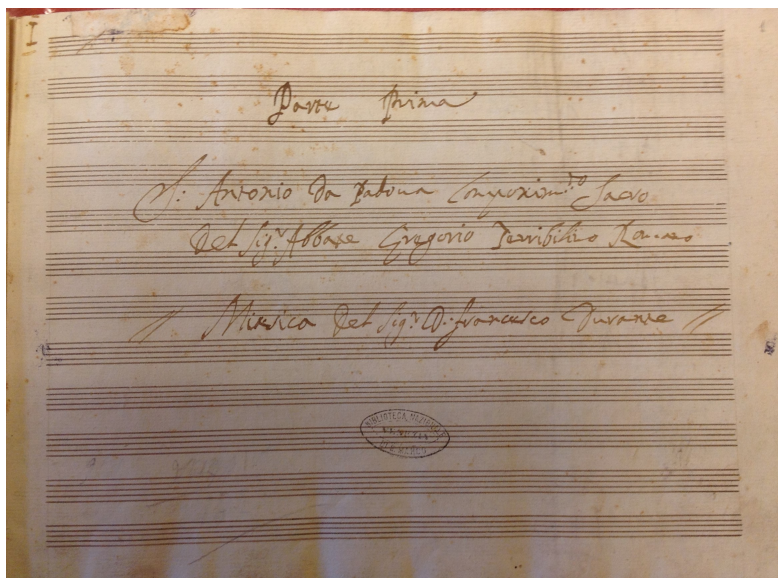 I
Parte Prima
S: Antonio Da Padoua Componim.to Sacro
Del Sig.r Abbate Gregorio Terribilino Romano
// Musica Del Sig.r D: Francesco Durante //
BIBLIOTECA NAZIONALE
VENEZIA
DI S. MARCO